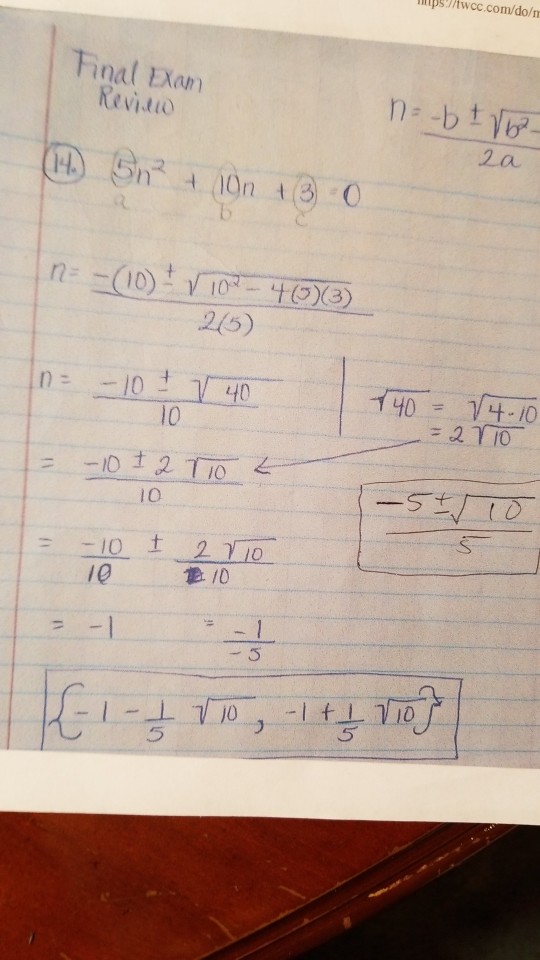 https://twcc.com/do/m
Final Exam
Review
n = -b ± √b²-
2a
14. 5n² + 10n + 3 = 0
a b c
n = -(10) ± √10² - 4(5)(3)
2(5)
n = -10 ± √40
10
√40 = √4·10
= 2√10
= -10 ± 2 √10
10
-5 ± √10
5
= -10 ± 2√10
10 10
= -1 = -1
-5
{-1 - 1/5 √10, -1 + 1/5 √10}